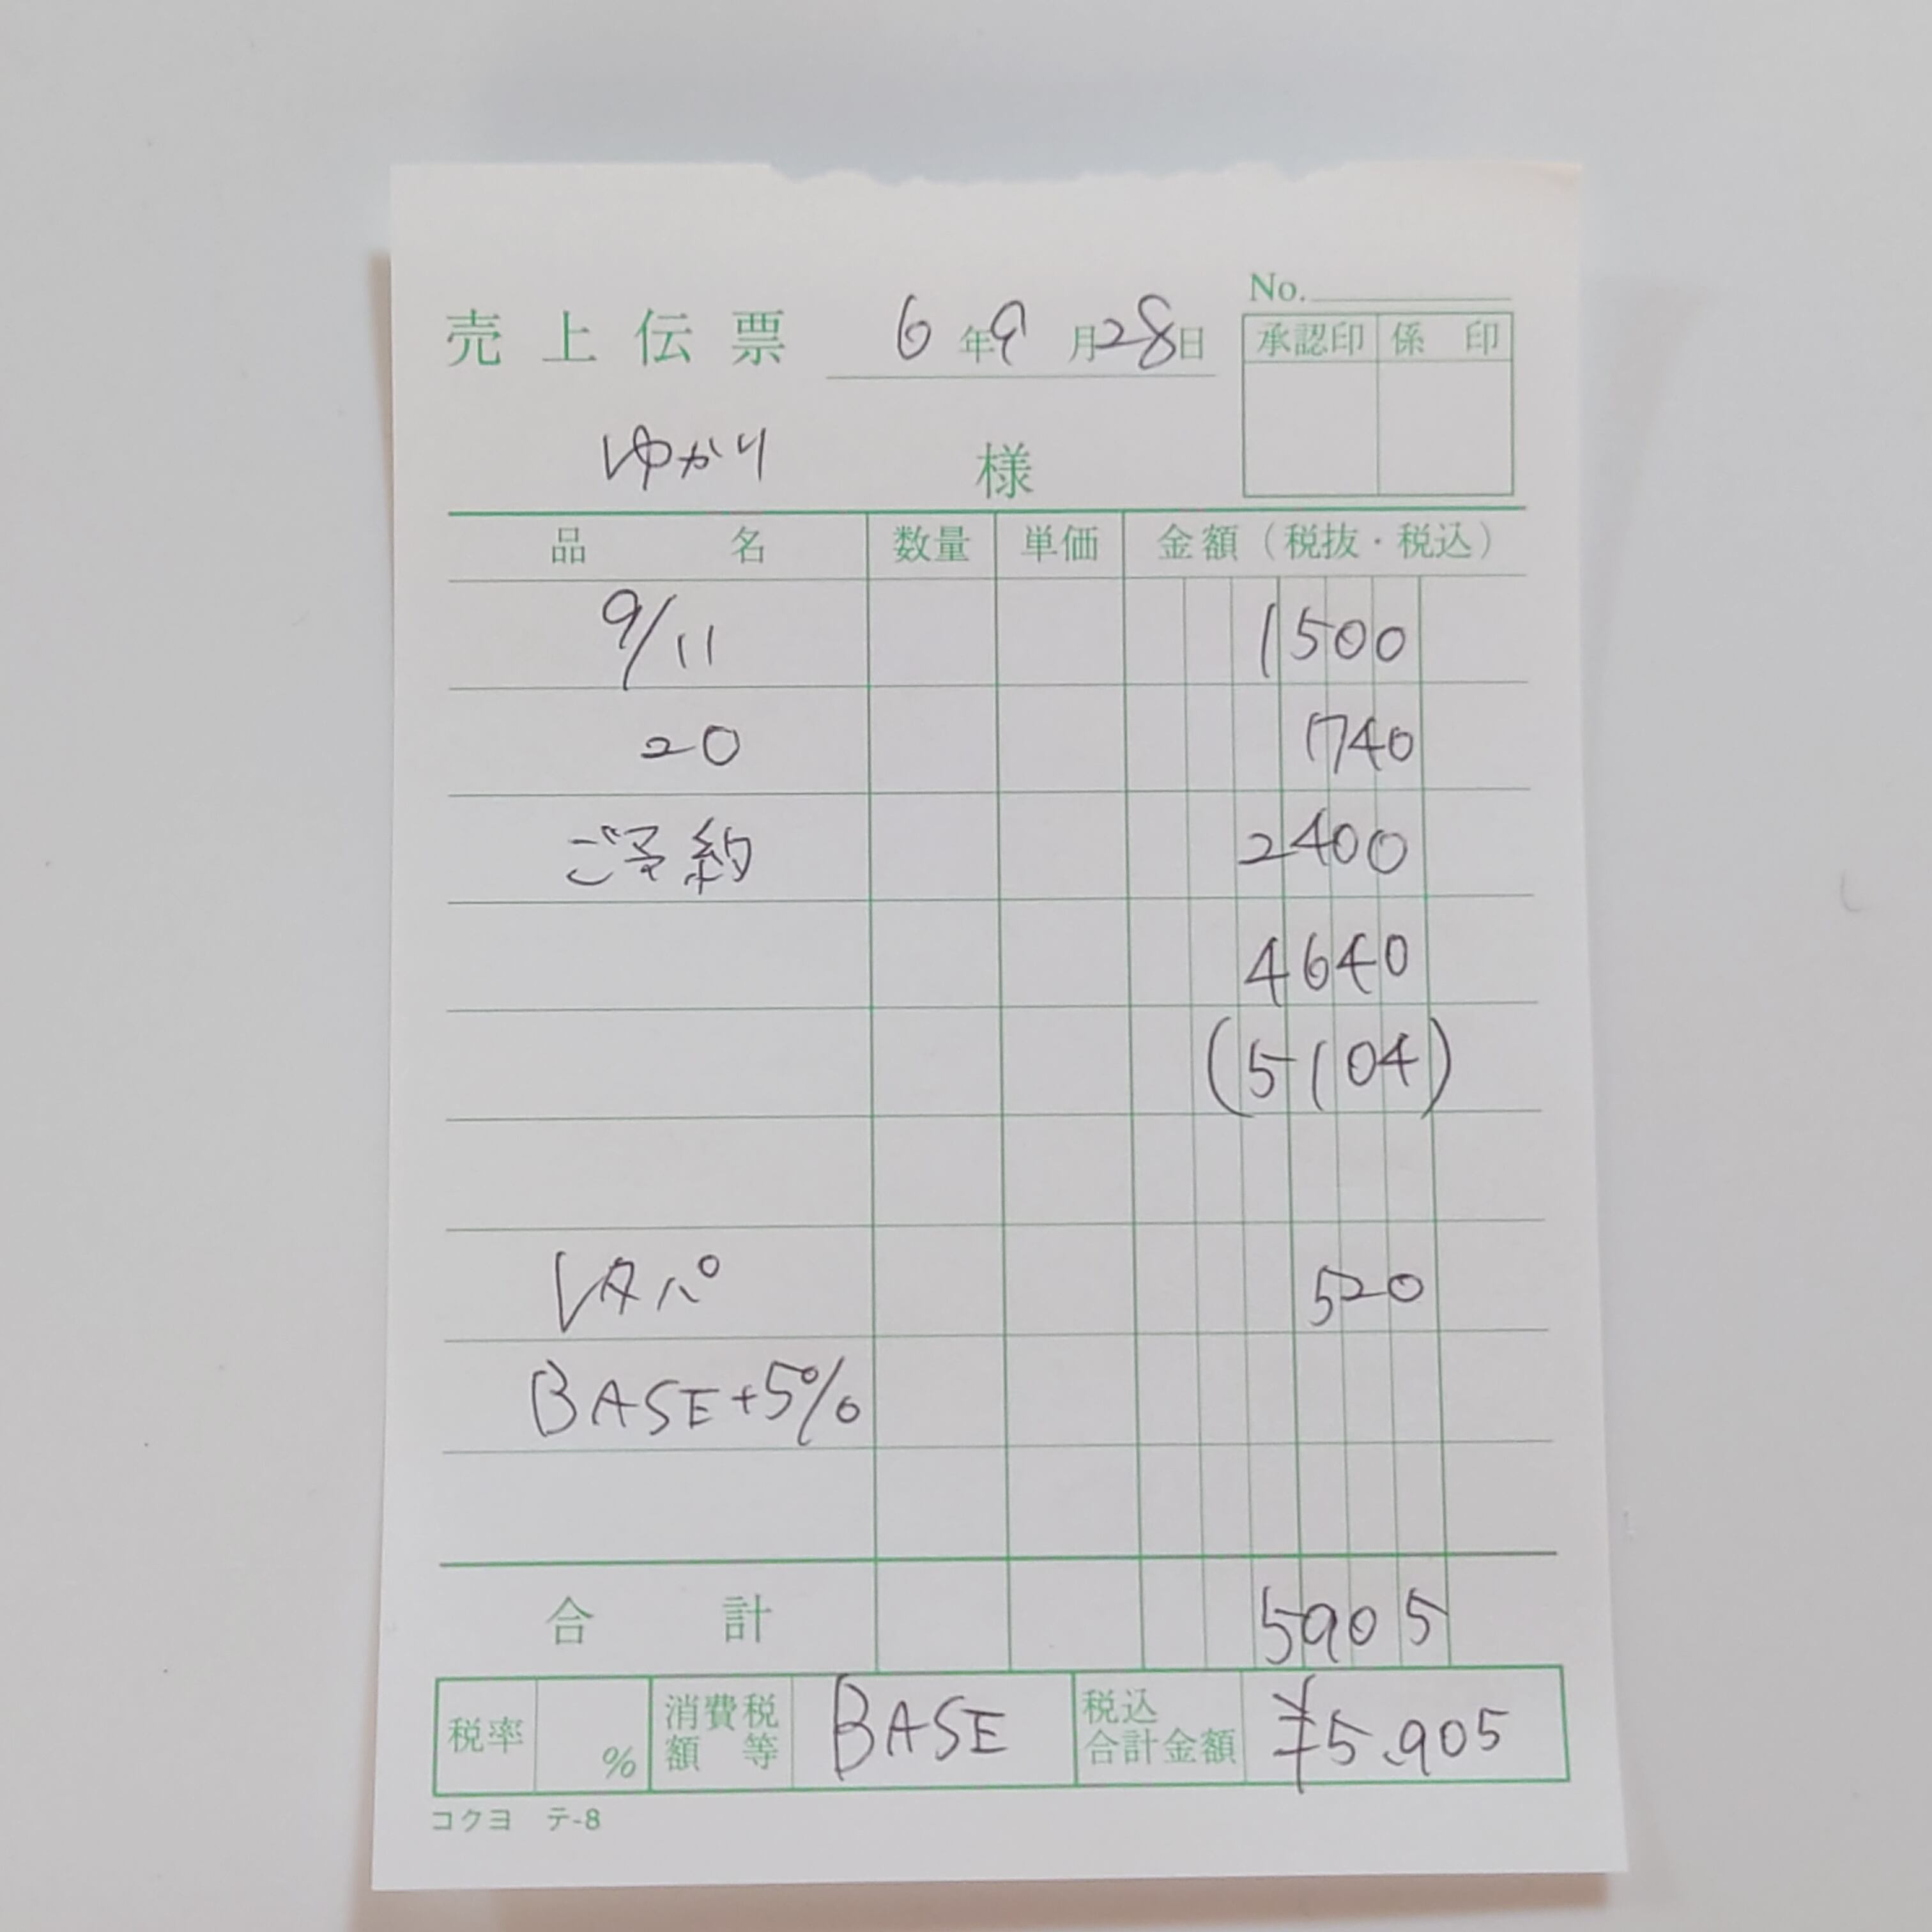 No.
売上伝票 6年9月28日
承認印 係印
ゆかり 様
品名 数量 単価 金額（税抜・税込）
9/11 1500
20 740
ご予約 2400
4640
(5104)
レタパ 520
BASE+5%
合計 5905
税率 % 消費税額等 BASE 税込合計金額 ¥5.905
コクヨ テ-8